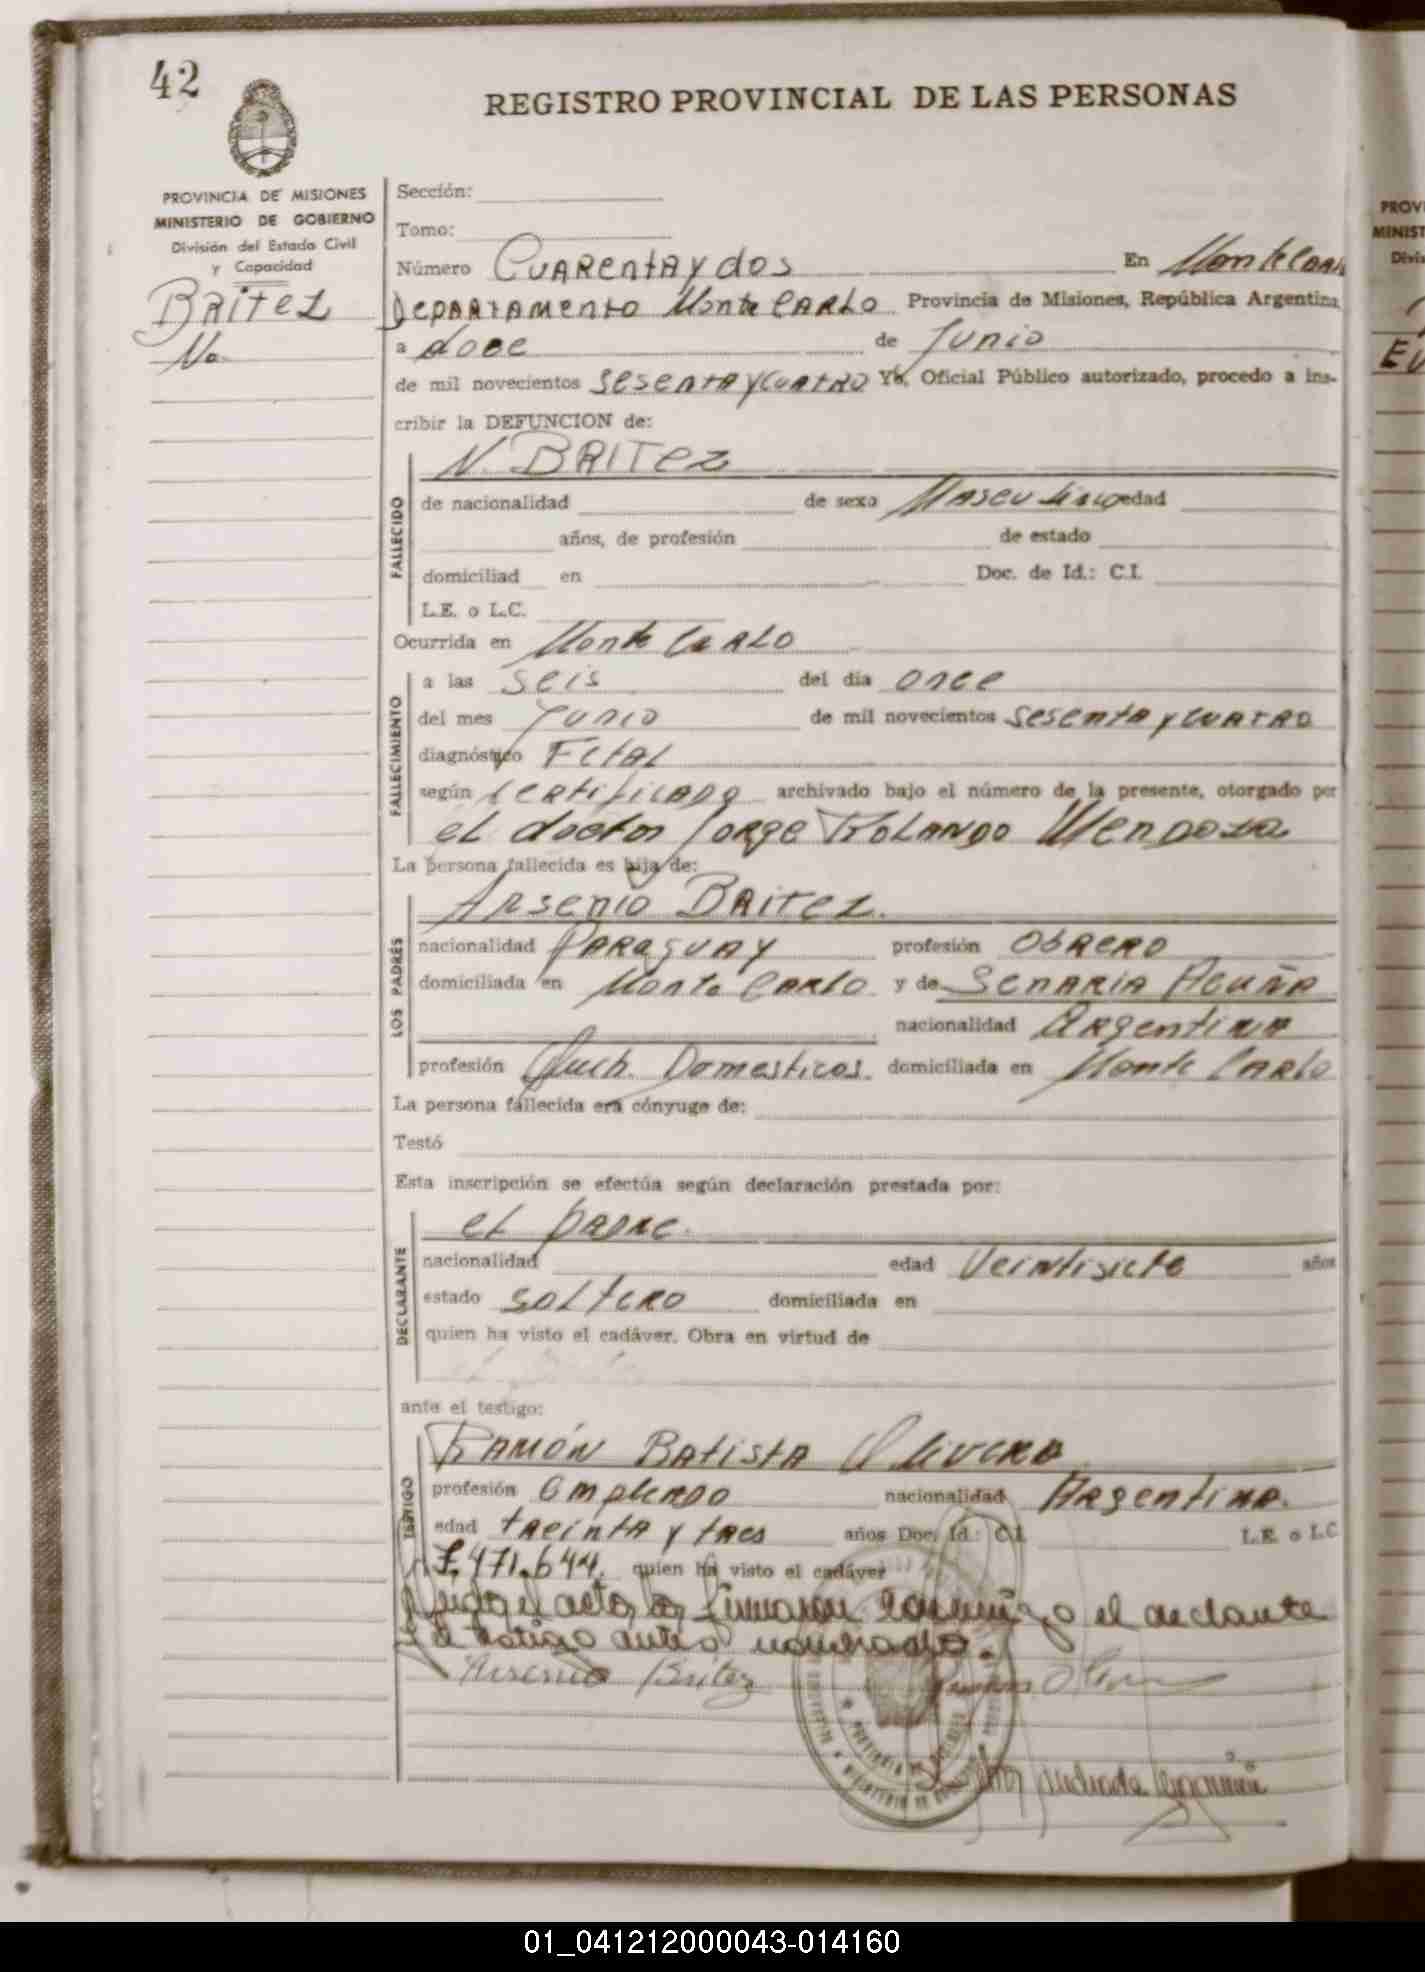 42
REGISTRO PROVINCIAL DE LAS PERSONAS
PROVINCIA DE MISIONES
MINISTERIO DE GOBIERNO
División del Estado Civil
y Capacidad
BRITEZ
No.
Sección:
Tomo:
Número Cuarenta y dos En Monte Carlo
Departamento Monte Carlo Provincia de Misiones, República Argentina
a doce de Junio
de mil novecientos sesenta y cuatro Yo, Oficial Público autorizado, procedo a ins-
cribir la DEFUNCION de:
FALLECIDO
N. BRITEZ
de nacionalidad de sexo Masculino edad
años, de profesión de estado
domiciliad en Doc. de Id.: C.I.
L.E. o L.C.
Ocurrida en Monte Carlo
FALLECIMIENTO
a las seis del día once
del mes Junio de mil novecientos sesenta y cuatro
diagnóstico Fetal
según certificado archivado bajo el número de la presente, otorgado por
el doctor Jorge Rolando Mendoza
La persona fallecida es hija de:
LOS PADRES
Arsenio Britez.
nacionalidad Paraguay profesión Obrero
domiciliada en Monte Carlo y de Senaria Acuña
nacionalidad Argentina
profesión Domesticos. domiciliada en Monte Carlo
La persona fallecida era cónyuge de:
Testó
Esta inscripción se efectúa según declaración prestada por:
DECLARANTE
el padre.
nacionalidad edad Veintisiete años
estado soltero domiciliada en
quien ha visto el cadáver. Obra en virtud de
ante el testigo:
TESTIGO
Ramón Batista Olivera
profesión Empleado nacionalidad Argentina.
edad treinta y tres años Doc. Id.: C.I. L.E. o L.C.
7.471.644. quien ha visto el cadáver
el acto, la firmaron conmigo el declarante
y el testigo antes nombrado.
Arsenio Britez
PROVINCIA DE MISIONES
MINISTERIO DE
Andrade
PROVI
MINIST
Divis
EU
01_041212000043-014160